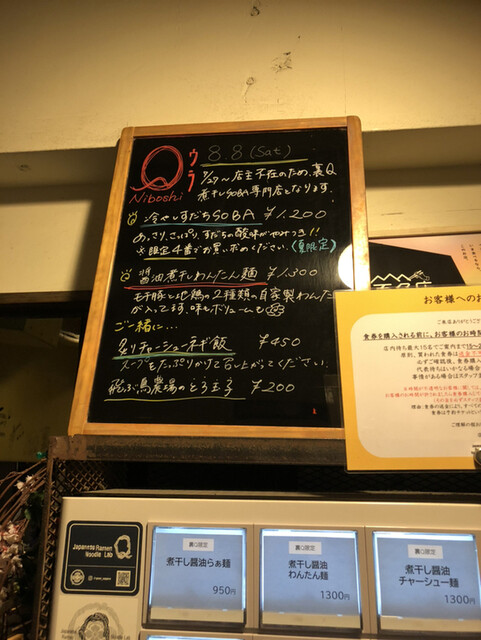 Q
ウラ
Niboshi
8.8 (Sat)
7/27〜店主不在のため、裏Q
煮干しSOBA専門店となります。
冷やしすだちSOBA ¥1,200
あっさり、さっぱり、すだちの酸味がやみつき!!
※限定4番でお買い求めください。(夏限定)
醤油煮干しわんたん麺 ¥1,300
地鶏の2種類の自家製わんたん
が入ってます。味もボリュームも
ご一緒に…
炙りチャーシューネギ飯 ¥450
スープをたっぷりかけて召し上がってください。
飛ぶ鳥農場のとろ玉子 ¥200
お客様へのお
食券を購入される前に、お客様のお時間
店内待ち最大15名でご案内まで15〜
Japanese Ramen
Noodle Lab
Q
裏Q限定
煮干し醤油らぁ麺
950円
裏Q限定
煮干し醤油
わんたん麺
1300円
裏Q限定
煮干し醤油
チャーシュー麺
1300円
Japanese Ramen
Noodle Lab